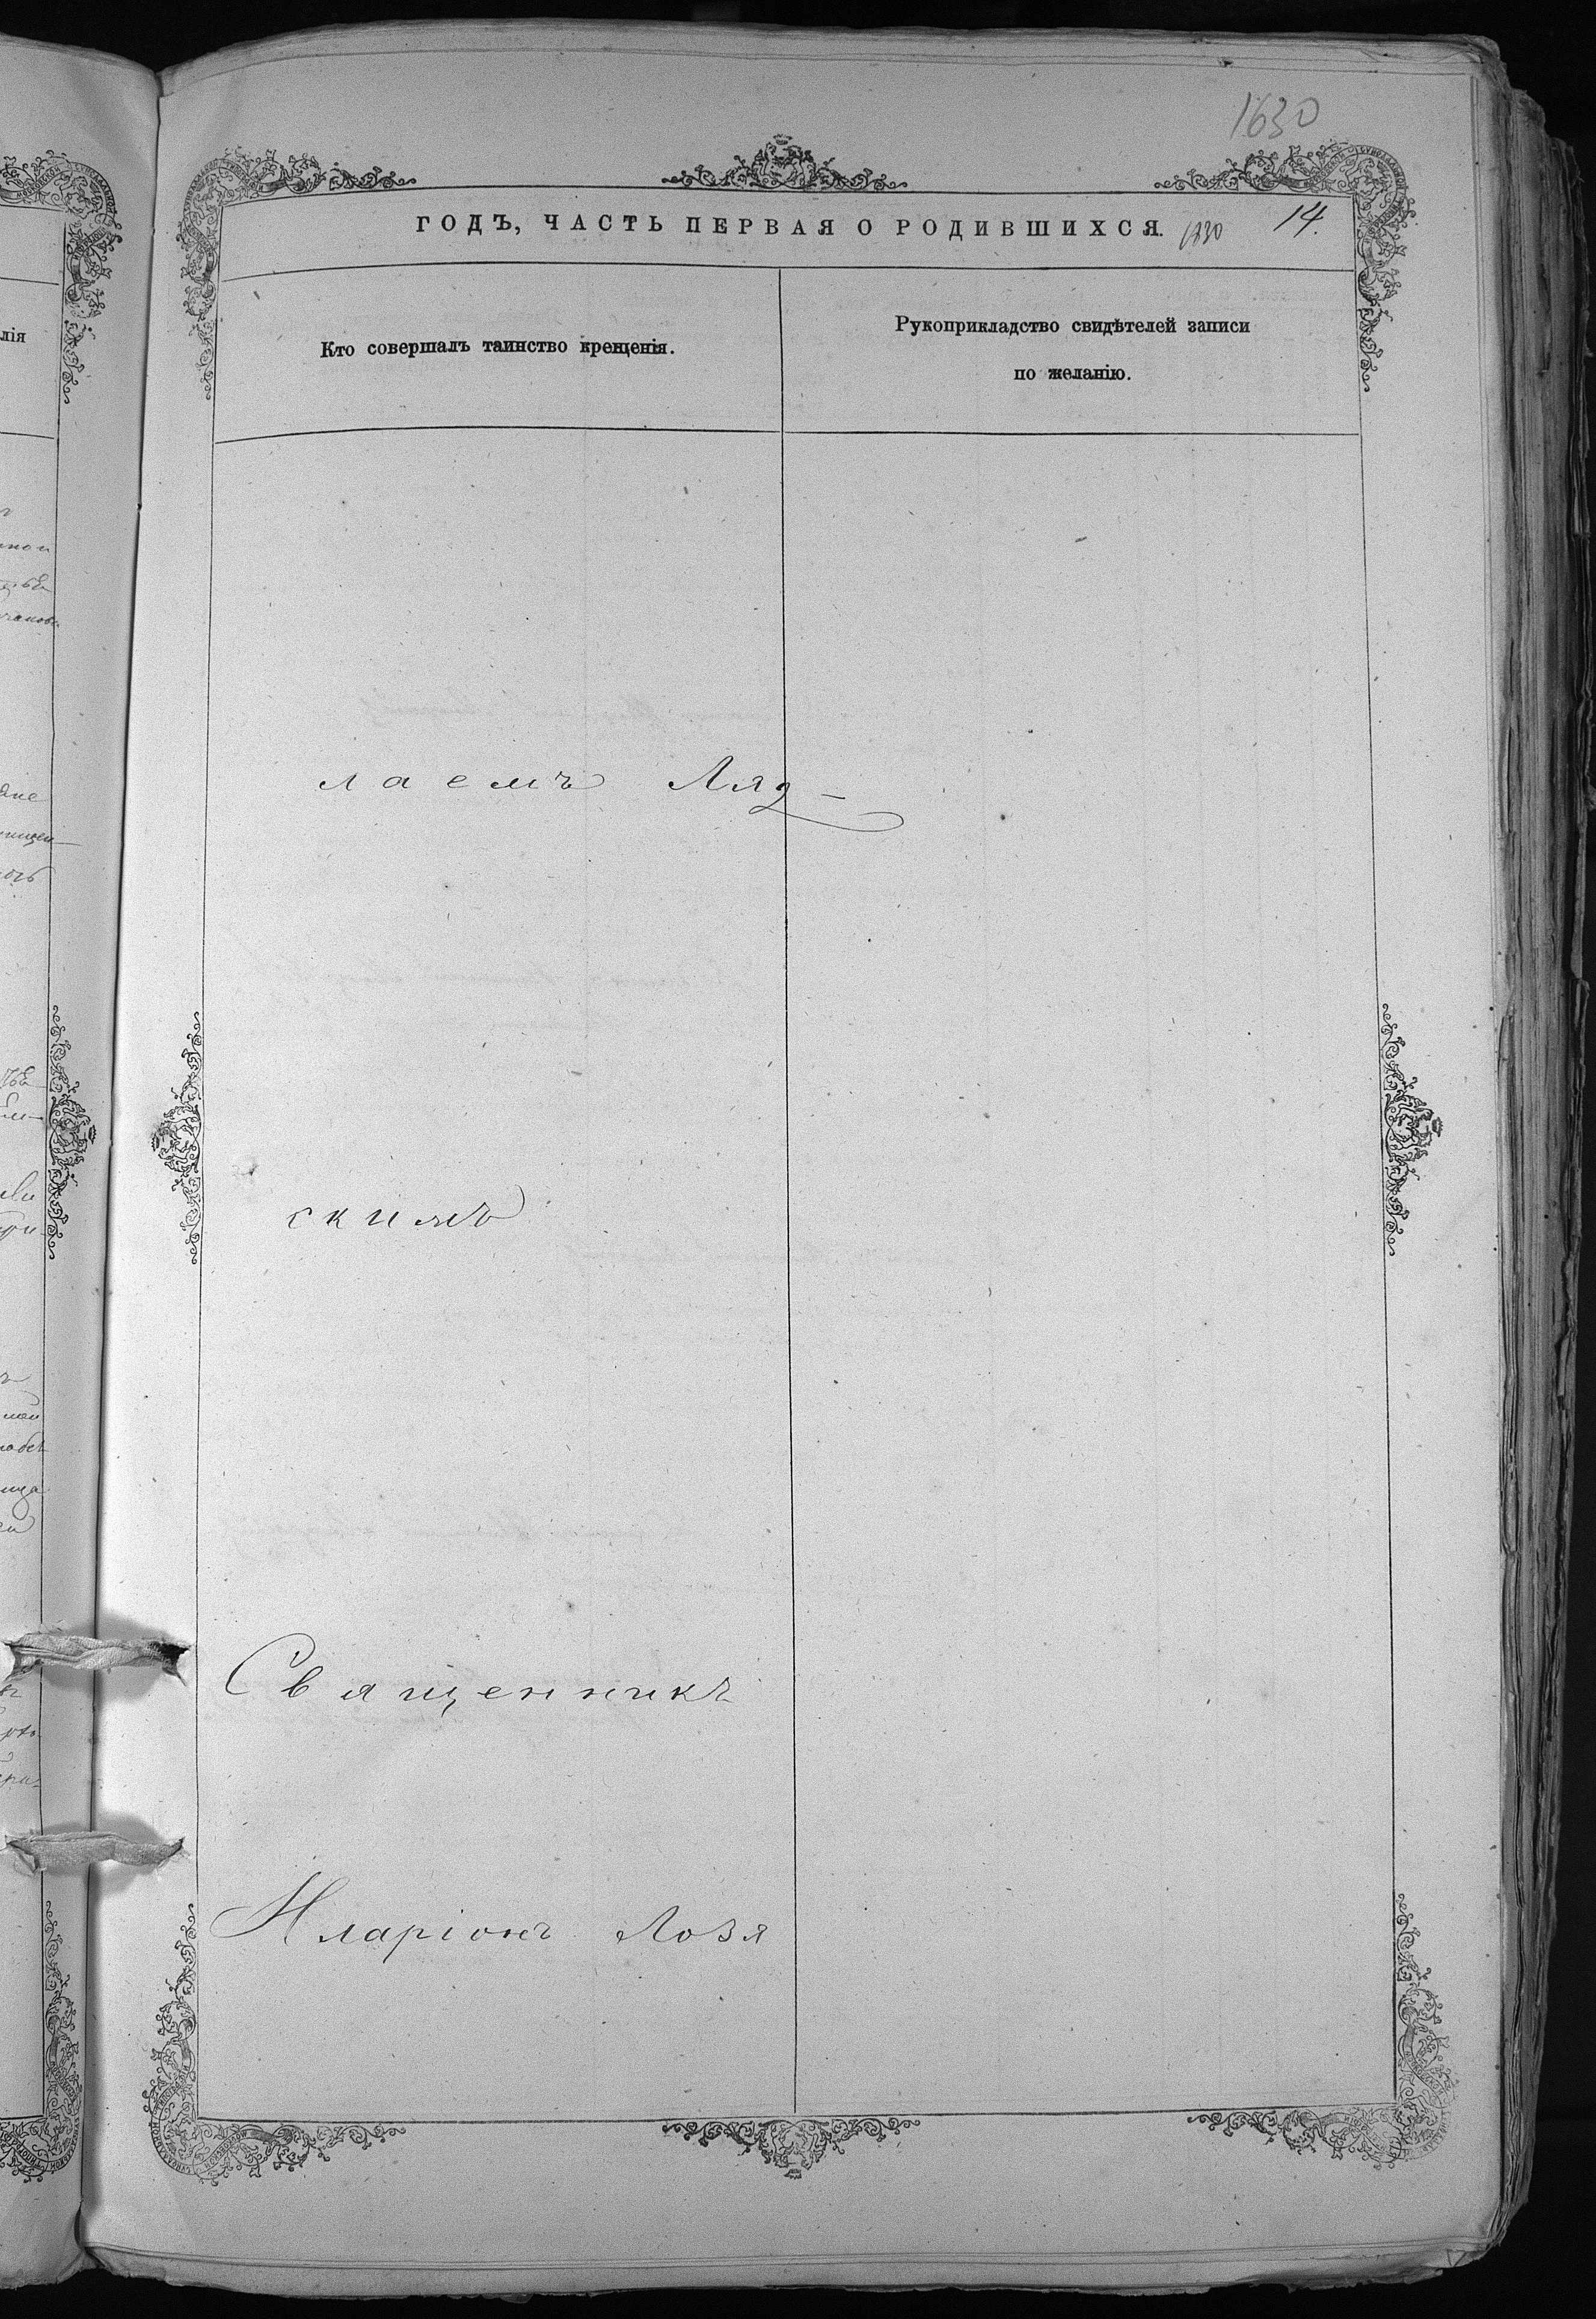 1630
ГОДЪ, ЧАСТЬ ПЕРВАЯ О РОДИВШИХСЯ.
14.
Кто совершалъ таинство крещенія.
Рукоприкладство свидѣтелей записи
по желанію.
лаемъ Ляд-
скимъ
Священникъ
Иларіонъ Лозя
лія